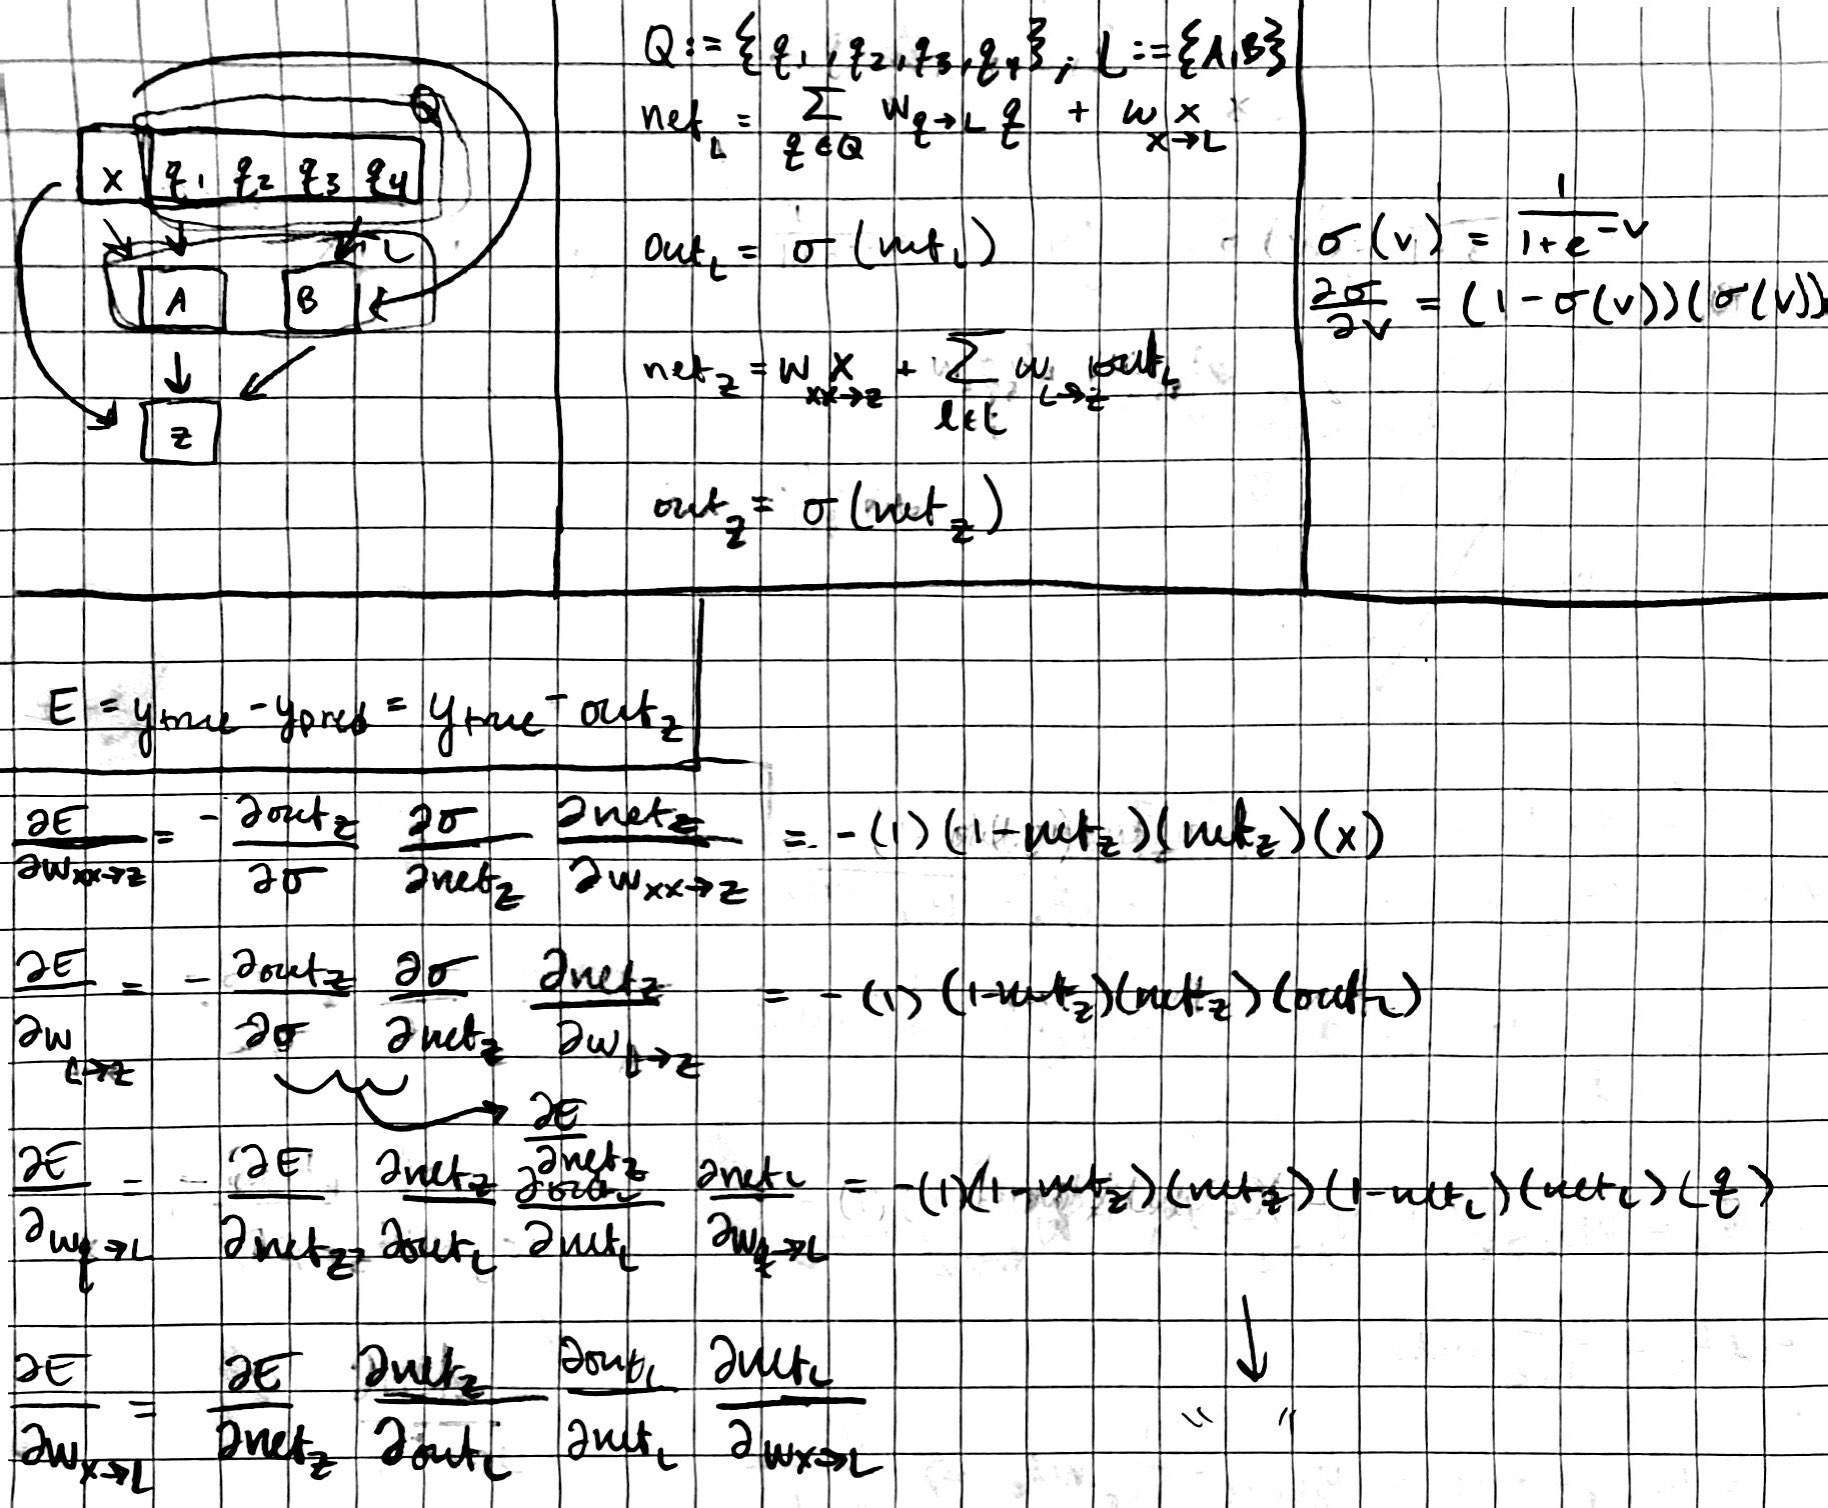 Q
x q₁ q₂ q₃ q₄
L
A B
z
Q := {q₁, q₂, q₃, q₄}; L := {A, B}
net_L = Σ_{q∈Q} w_{q→L} q + w_{x→L} x
out_L = σ(net_L)
net_z = w_{xx→z} x + Σ_{l∈L} w_{L→z} out_L
out_z = σ(net_z)
σ(v) = 1/(1+e^{-v})
∂σ/∂v = (1-σ(v))(σ(v))
E = y_true - y_pred = y_true - out_z
∂E/∂w_{xx→z} = - ∂out_z/∂σ ∂σ/∂net_z ∂net_z/∂w_{xx→z} = -(1)(1-net_z)(net_z)(x)
∂E/∂w_{L→z} = - ∂out_z/∂σ ∂σ/∂net_z ∂net_z/∂w_{L→z} = -(1)(1-net_z)(net_z)(out_L)
∂E/∂net_z
∂E/∂w_{q→L} = ∂E/∂net_z ∂net_z/∂out_L ∂out_L/∂net_L ∂net_L/∂w_{q→L} = -(1)(1-net_z)(net_z)(1-net_L)(net_L)(q)
∂E/∂w_{x→L} = ∂E/∂net_z ∂net_z/∂out_L ∂out_L/∂net_L ∂net_L/∂w_{x→L} " "